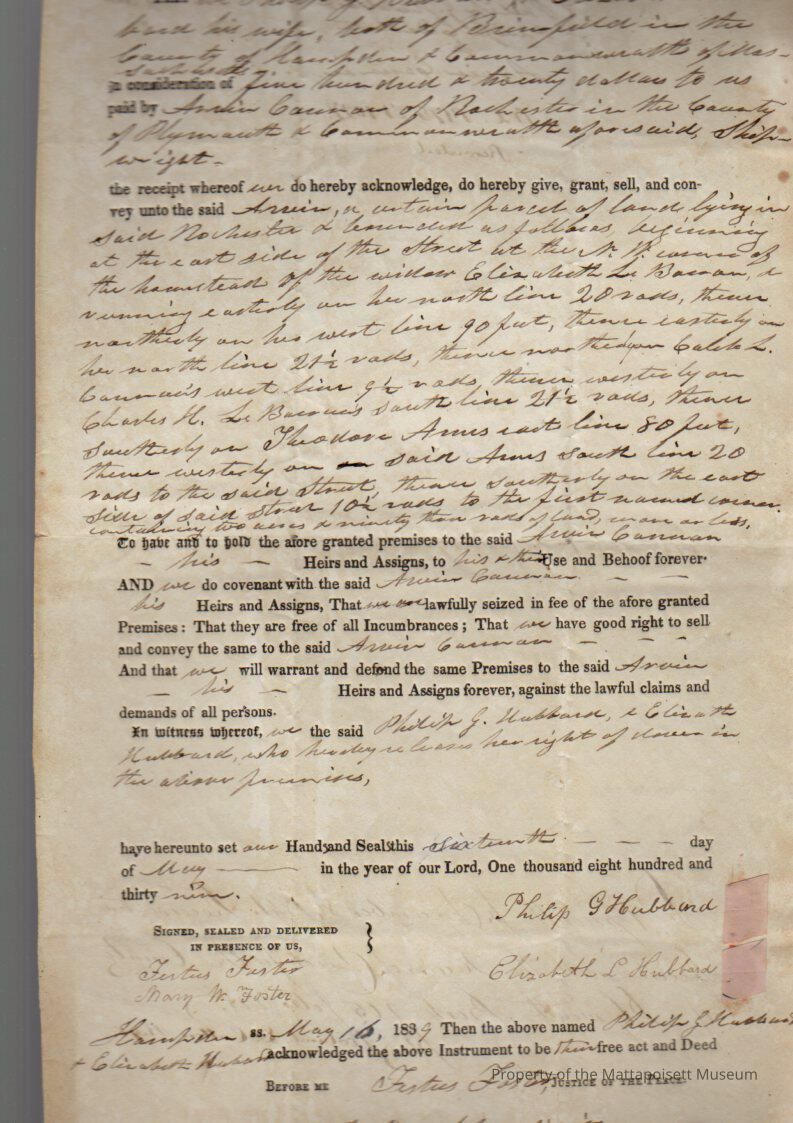 bard his wife, both of Brimfield in the
County of Hampden & Commonwealth of Mas-
sachusetts
in consideration of five hundred & twenty dollars to us
paid by Arvin Cannon of Rochester in the County
of Plymouth & Commonwealth aforesaid, Ship-
wright-
the receipt whereof we do hereby acknowledge, do hereby give, grant, sell, and con-
vey unto the said Arvin, a certain parcel of land lying in
said Rochester & bounded as follows, beginning
at the east side of the Street at the N. W. corner of
the homestead of the widow Elizabeth Le Baron, &
running easterly on her north line 20 rods, thence
northerly on his west line 90 feet, thence easterly on
her north line 21½ rods, thence northerly on Caleb L.
Cannon's west line 9½ rods, thence westerly on
Charles H. Le Baron's south line 21½ rods, thence
southerly on Theodore Ames east line 80 feet,
thence westerly on said Ames south line 20
rods to the said Street, thence southerly on the east
side of said Street 10½ rods to the first named corner.
containing two acres & ninety three rods of land, more or less,
To have and to hold the afore granted premises to the said Arvin Cannon
- his - Heirs and Assigns, to his & their Use and Behoof forever.
AND we do covenant with the said Arvin Cannon - -
his Heirs and Assigns, That we are lawfully seized in fee of the afore granted
Premises: That they are free of all Incumbrances; That we have good right to sell
and convey the same to the said Arvin Cannon - - -
And that we will warrant and defend the same Premises to the said Arvin
- his - Heirs and Assigns forever, against the lawful claims and
demands of all persons.
In witness whereof, we the said Philip G. Hubbard, & Elizabeth
Hubbard, who hereby releases her right of dower in
the above premises,
have hereunto set our Hands and Seals this sixteenth - - - day
of May in the year of our Lord, One thousand eight hundred and
thirty nine.
Philip G Hubbard
SIGNED, SEALED AND DELIVERED
IN PRESENCE OF US,
Festus Foster
Elizabeth L Hubbard
Mary W. Foster
Hampden ss. May 16, 1839 Then the above named Philip G Hubbard
& Elizabeth Hubbard acknowledged the above Instrument to be their free act and Deed
BEFORE ME Festus Foster, JUSTICE OF THE PEACE.
Property of the Mattapoisett Museum